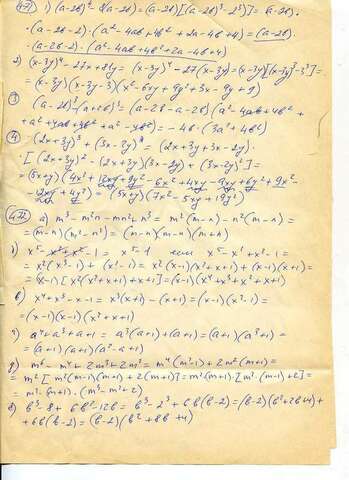 1) (a-2b)⁴ - 8(a-2b) = (a-2b)[(a-2b)³ - 2³] = (a-2b)·
·(a-2b-2)·(a²-4ab+4b²+2a-4b+4) = (a-2b)·
·(a-2b-2)·(a²-4ab+4b²+2a-4b+4)
2) (x-3y)⁴ - 27x + 81y = (x-3y)⁴ - 27(x-3y) = (x-3y)[(x-3y)³-3³] =
= (x-3y)(x-3y-3)(x²-6xy+9y²+3x-9y+9)
3) (a-2b)³ - (a+2b)³ = (a-2b-a-2b)(a²-4ab+4b²+
+a²+4ab+4b²+a²-4b²) = -4b·(3a²+4b²)
4) (2x+3y)³ + (3x-2y)³ = (2x+3y+3x-2y)·
·[(2x+3y)²-(2x+3y)(3x-2y)+(3x-2y)²] =
= (5x+y)(4x²+12xy+9y²-6x²+4xy-9xy+6y²+9x²-
-12xy+4y²) = (5x+y)(7x²-5xy+19y²)
а) m³-m²n-mn²+n³ = m²(m-n)-n²(m-n) =
= (m-n)(m²-n²) = (m-n)(m-n)(m+n)
= x²(x³-1)+(x²-1) = x²(x-1)(x²+x+1)+(x-1)(x+1) =
= (x-1)[x²(x²+x+1)+x+1] = (x-1)(x⁴+x³+x²+x+1)
в) x⁴+x³-x-1 = x³(x+1)-(x+1) = (x+1)(x³-1) =
= (x+1)(x-1)(x²+x+1)
г) a⁴+a³+a+1 = a³(a+1)+(a+1) = (a+1)(a³+1) =
= (a+1)(a+1)(a²-a+1)
= m²[m²(m-1)(m+1)+2(m+1)] = m²(m+1)·[m²·(m-1)+2] =
= m²·(m+1)·(m³-m²+2)
е) b³-8+6b²-12b = b³-2³+6b(b-2) = (b-2)(b²+2b+4)+
+6b(b-2) = (b-2)(b²+8b+4)